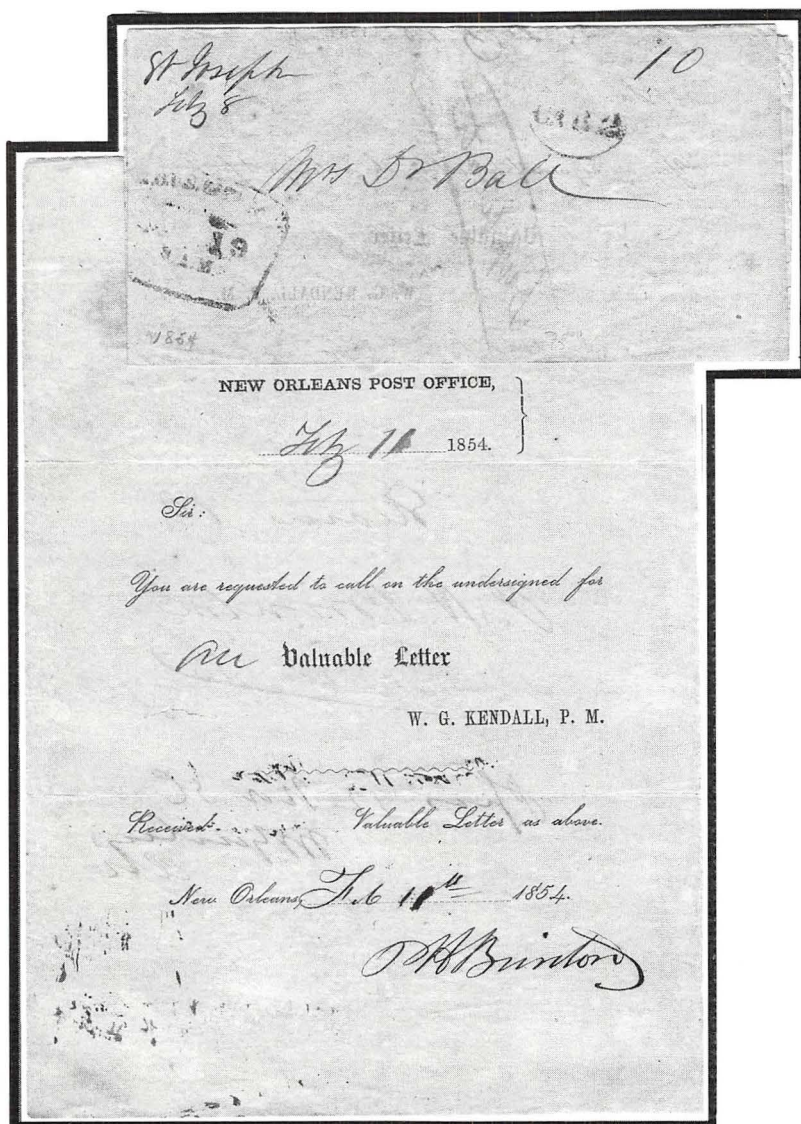 St Joseph 10
Feby 8
Mrs Dr Ball
1854
NEW ORLEANS POST OFFICE,
Feby 11 1854.
Sir:
You are requested to call on the undersigned for
One Valuable Letter
W. G. KENDALL, P. M.
Received Valuable Letter as above.
New Orleans, Feb 11th 1854.
Brinton